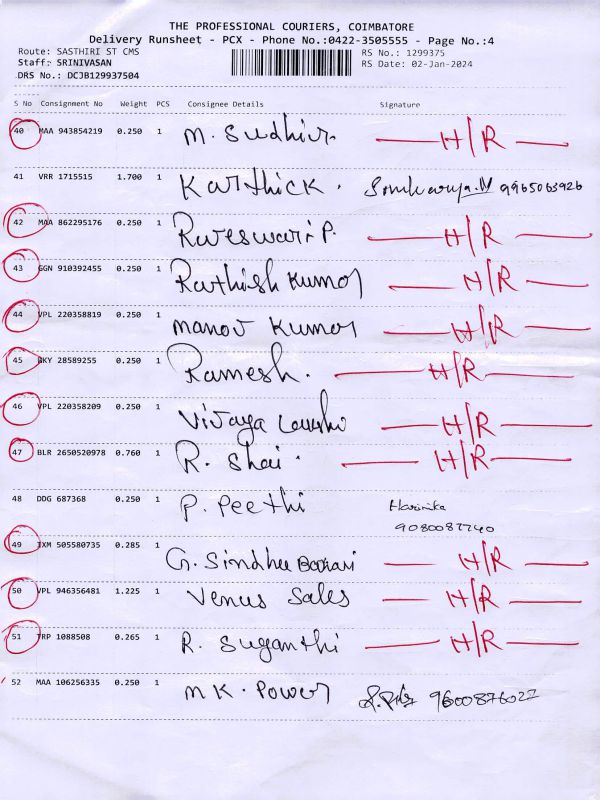 THE PROFESSIONAL COURIERS, COIMBATORE
Delivery Runsheet - PCX - Phone No.:0422-3505555 - Page No.:4
Route: SASTHIRI ST CMS RS No.: 1299375
Staff: SRINIVASAN RS Date: 02-Jan-2024
DRS No.: DCJB129937504
S No Consignment No Weight PCS Consignee Details Signature
40 MAA 943854219 0.250 1 M. Sudhir H/R
41 VRR 1715515 1.700 1 Karthick. 9965063926
42 MAA 862295176 0.250 1 Rareswari P. H/R
43 GGN 910392455 0.250 1 Rathish Kumar H/R
44 VPL 220358819 0.250 1 Manov Kumar H/R
45 GKY 28589255 0.250 1 Ramesh. H/R
46 VPL 220358209 0.250 1 Vijaya H/R
47 BLR 2650520978 0.760 1 R. Shai H/R
48 DDG 687368 0.250 1 P. Peethi Harinika
9080087240
49 IXM 505580735 0.285 1 G. Sindhu H/R
50 VPL 946356481 1.225 1 Venus Sales H/R
51 TRP 1088508 0.265 1 R. Suganthi H/R
52 MAA 106256335 0.250 1 M.K. Power 9600876027